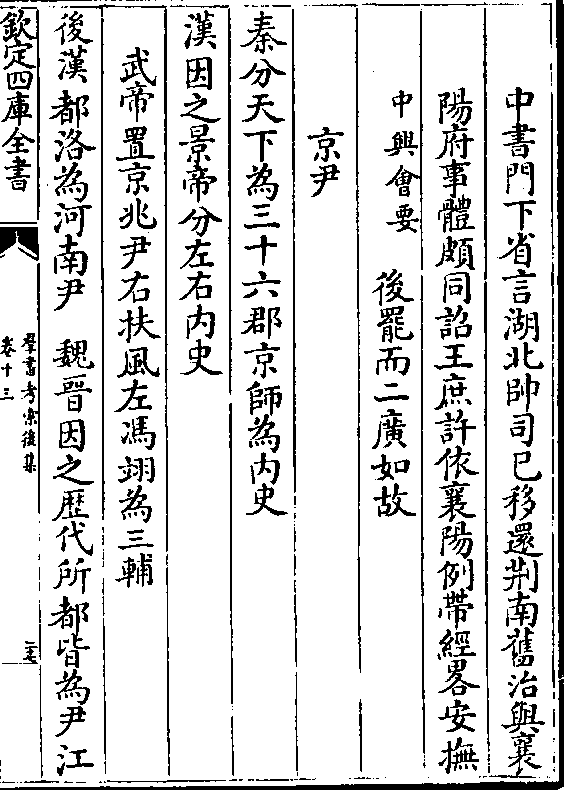 中書門下省言湖北帥司已移還荆南舊治與襄
陽府事體頗同詔王庶許依襄陽例帶經畧安撫
中興會要　後罷而二廣如故
京尹
秦分天下為三十六郡京師為内史
漢因之景帝分左右内史
武帝置京兆尹右扶風左馮翊為三輔
後漢都洛為河南尹　魏晋因之歴代所都皆為尹江
欽定四庫全書
羣書考索後集
卷十三